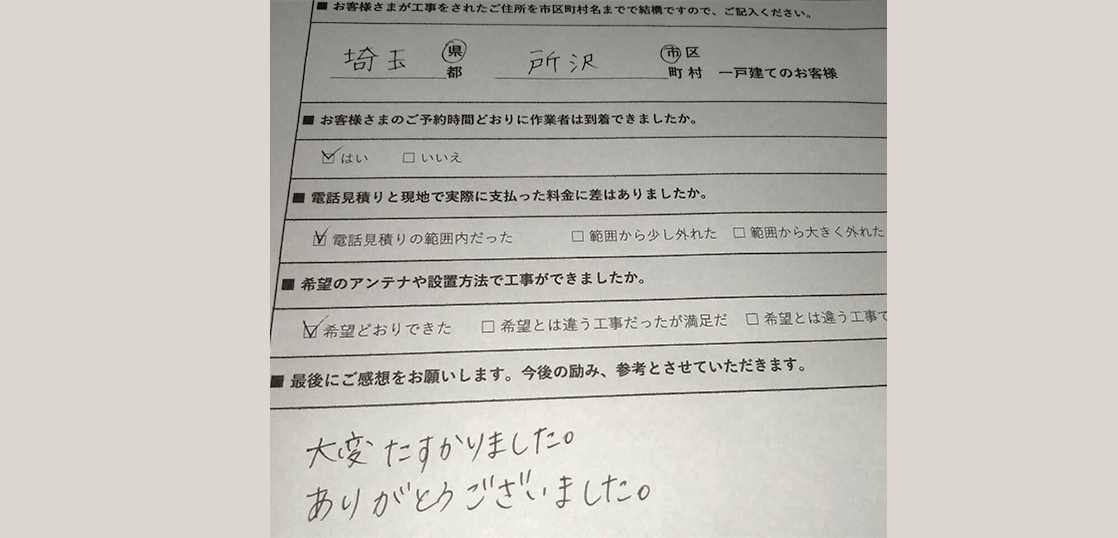 ■ お客様さまが工事をされたご住所を市区町村名までで結構ですので、ご記入ください。
埼玉 県 都 所沢 市 区 町 村 一戸建てのお客様
■ お客様さまのご予約時間どおりに作業者は到着できましたか。
☑ はい □ いいえ
■ 電話見積りと現地で実際に支払った料金に差はありましたか。
☑ 電話見積りの範囲内だった □ 範囲から少し外れた □ 範囲から大きく外れた
■ 希望のアンテナや設置方法で工事ができましたか。
☑ 希望どおりできた □ 希望とは違う工事だったが満足だ □ 希望とは違う工事で
■ 最後にご感想をお願いします。今後の励み、参考とさせていただきます。
大変たすかりました。
ありがとうございました。